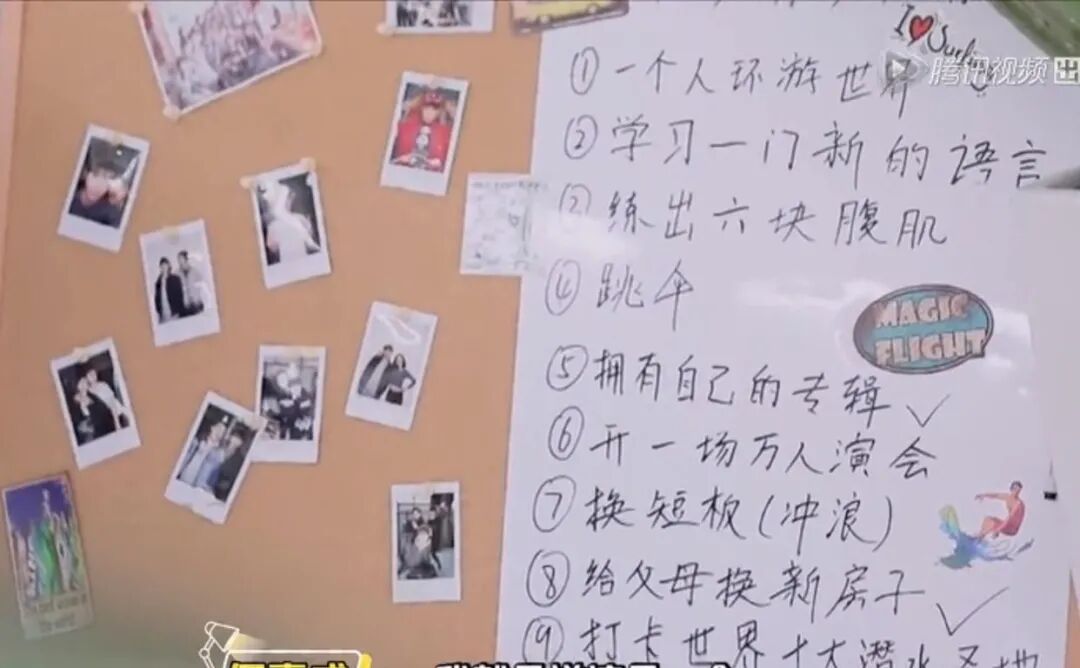 I ❤ Surfing
腾讯视频 出
① 一个人环游世界
② 学习一门新的语言
③ 练出六块腹肌
④ 跳伞
MAGIC
FLIGHT
⑤ 拥有自己的专辑 ✓
⑥ 开一场万人演会
⑦ 换短板(冲浪)
⑧ 给父母换新房子 ✓
⑨ 打卡世界十大潜水圣地